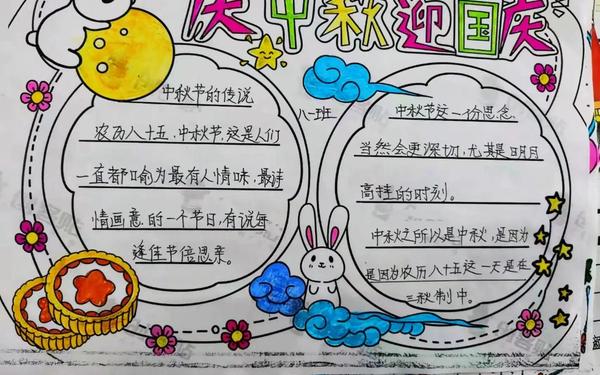 庆中秋迎国庆
中秋节的传说
农历八十五，中秋节，这是人们
一直都喻为最有人情味，最诗
情画意的一个节日，有说每
逢佳节倍思亲。
八一班
中秋节这一份思念
当然会更深切，尤其是明月
高挂的时刻。
中秋之所以是中秋，是因为
是因为农历八十五这一天是在
三秋制中。